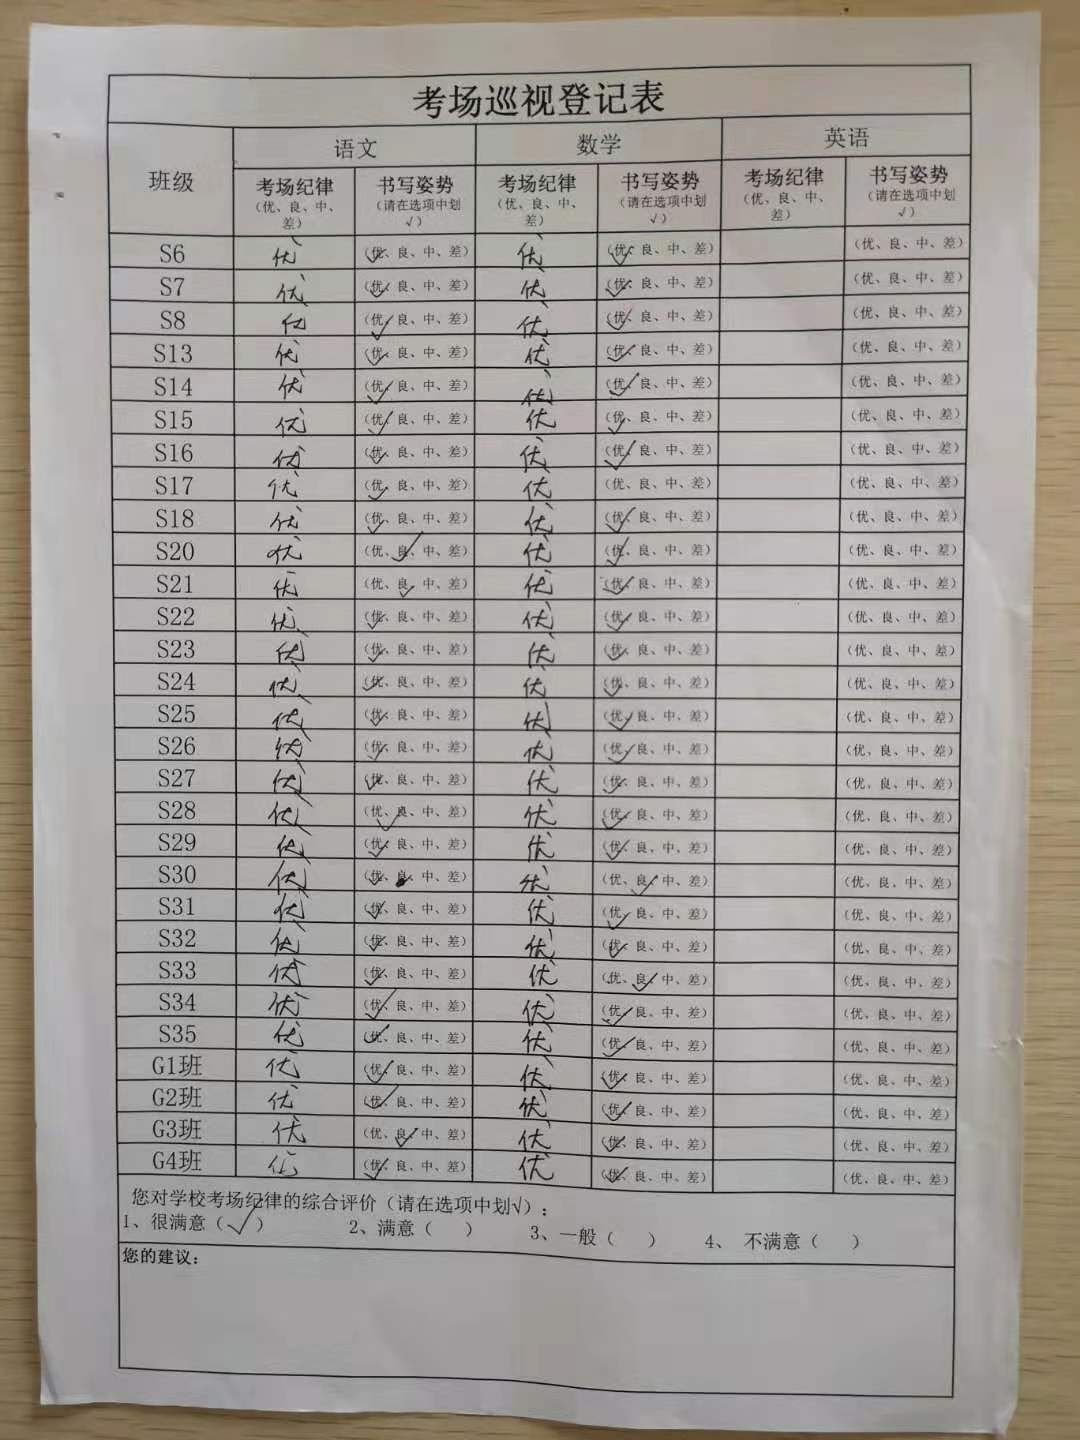 考场巡视登记表
班级 语文 数学 英语
考场纪律 书写姿势 考场纪律 书写姿势 考场纪律 书写姿势
(优、良、中、差) (请在选项中划√) (优、良、中、差) (请在选项中划√) (优、良、中、差) (请在选项中划√)
S6 优 (优、良、中、差) 优 (优、良、中、差) (优、良、中、差)
S7 优 (优、良、中、差) 优 (优、良、中、差) (优、良、中、差)
S8 优 (优、良、中、差) 优 (优、良、中、差) (优、良、中、差)
S13 优 (优、良、中、差) 优 (优、良、中、差) (优、良、中、差)
S14 优 (优、良、中、差) 优 (优、良、中、差) (优、良、中、差)
S15 优 (优、良、中、差) 优 (优、良、中、差) (优、良、中、差)
S16 优 (优、良、中、差) 优 (优、良、中、差) (优、良、中、差)
S17 优 (优、良、中、差) 优 (优、良、中、差) (优、良、中、差)
S18 优 (优、良、中、差) 优 (优、良、中、差) (优、良、中、差)
S20 优 (优、良、中、差) 优 (优、良、中、差) (优、良、中、差)
S21 优 (优、良、中、差) 优 (优、良、中、差) (优、良、中、差)
S22 优 (优、良、中、差) 优 (优、良、中、差) (优、良、中、差)
S23 优 (优、良、中、差) 优 (优、良、中、差) (优、良、中、差)
S24 优 (优、良、中、差) 优 (优、良、中、差) (优、良、中、差)
S25 优 (优、良、中、差) 优 (优、良、中、差) (优、良、中、差)
S26 优 (优、良、中、差) 优 (优、良、中、差) (优、良、中、差)
S27 优 (优、良、中、差) 优 (优、良、中、差) (优、良、中、差)
S28 优 (优、良、中、差) 优 (优、良、中、差) (优、良、中、差)
S29 优 (优、良、中、差) 优 (优、良、中、差) (优、良、中、差)
S30 优 (优、良、中、差) 优 (优、良、中、差) (优、良、中、差)
S31 优 (优、良、中、差) 优 (优、良、中、差) (优、良、中、差)
S32 优 (优、良、中、差) 优 (优、良、中、差) (优、良、中、差)
S33 优 (优、良、中、差) 优 (优、良、中、差) (优、良、中、差)
S34 优 (优、良、中、差) 优 (优、良、中、差) (优、良、中、差)
S35 优 (优、良、中、差) 优 (优、良、中、差) (优、良、中、差)
G1班 优 (优、良、中、差) 优 (优、良、中、差) (优、良、中、差)
G2班 优 (优、良、中、差) 优 (优、良、中、差) (优、良、中、差)
G3班 优 (优、良、中、差) 优 (优、良、中、差) (优、良、中、差)
G4班 优 (优、良、中、差) 优 (优、良、中、差) (优、良、中、差)
您对学校考场纪律的综合评价(请在选项中划√):
1、很满意(√) 2、满意( ) 3、一般( ) 4、不满意( )
您的建议: